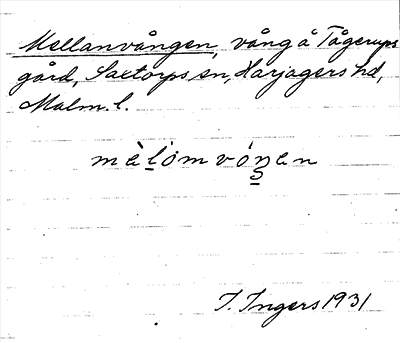 Mellanvången, vång å Tågerups
gård, Saxtorps sn, Harjagers hd,
Malm. l.
mèlòmvóŋen
I. Ingers 1931